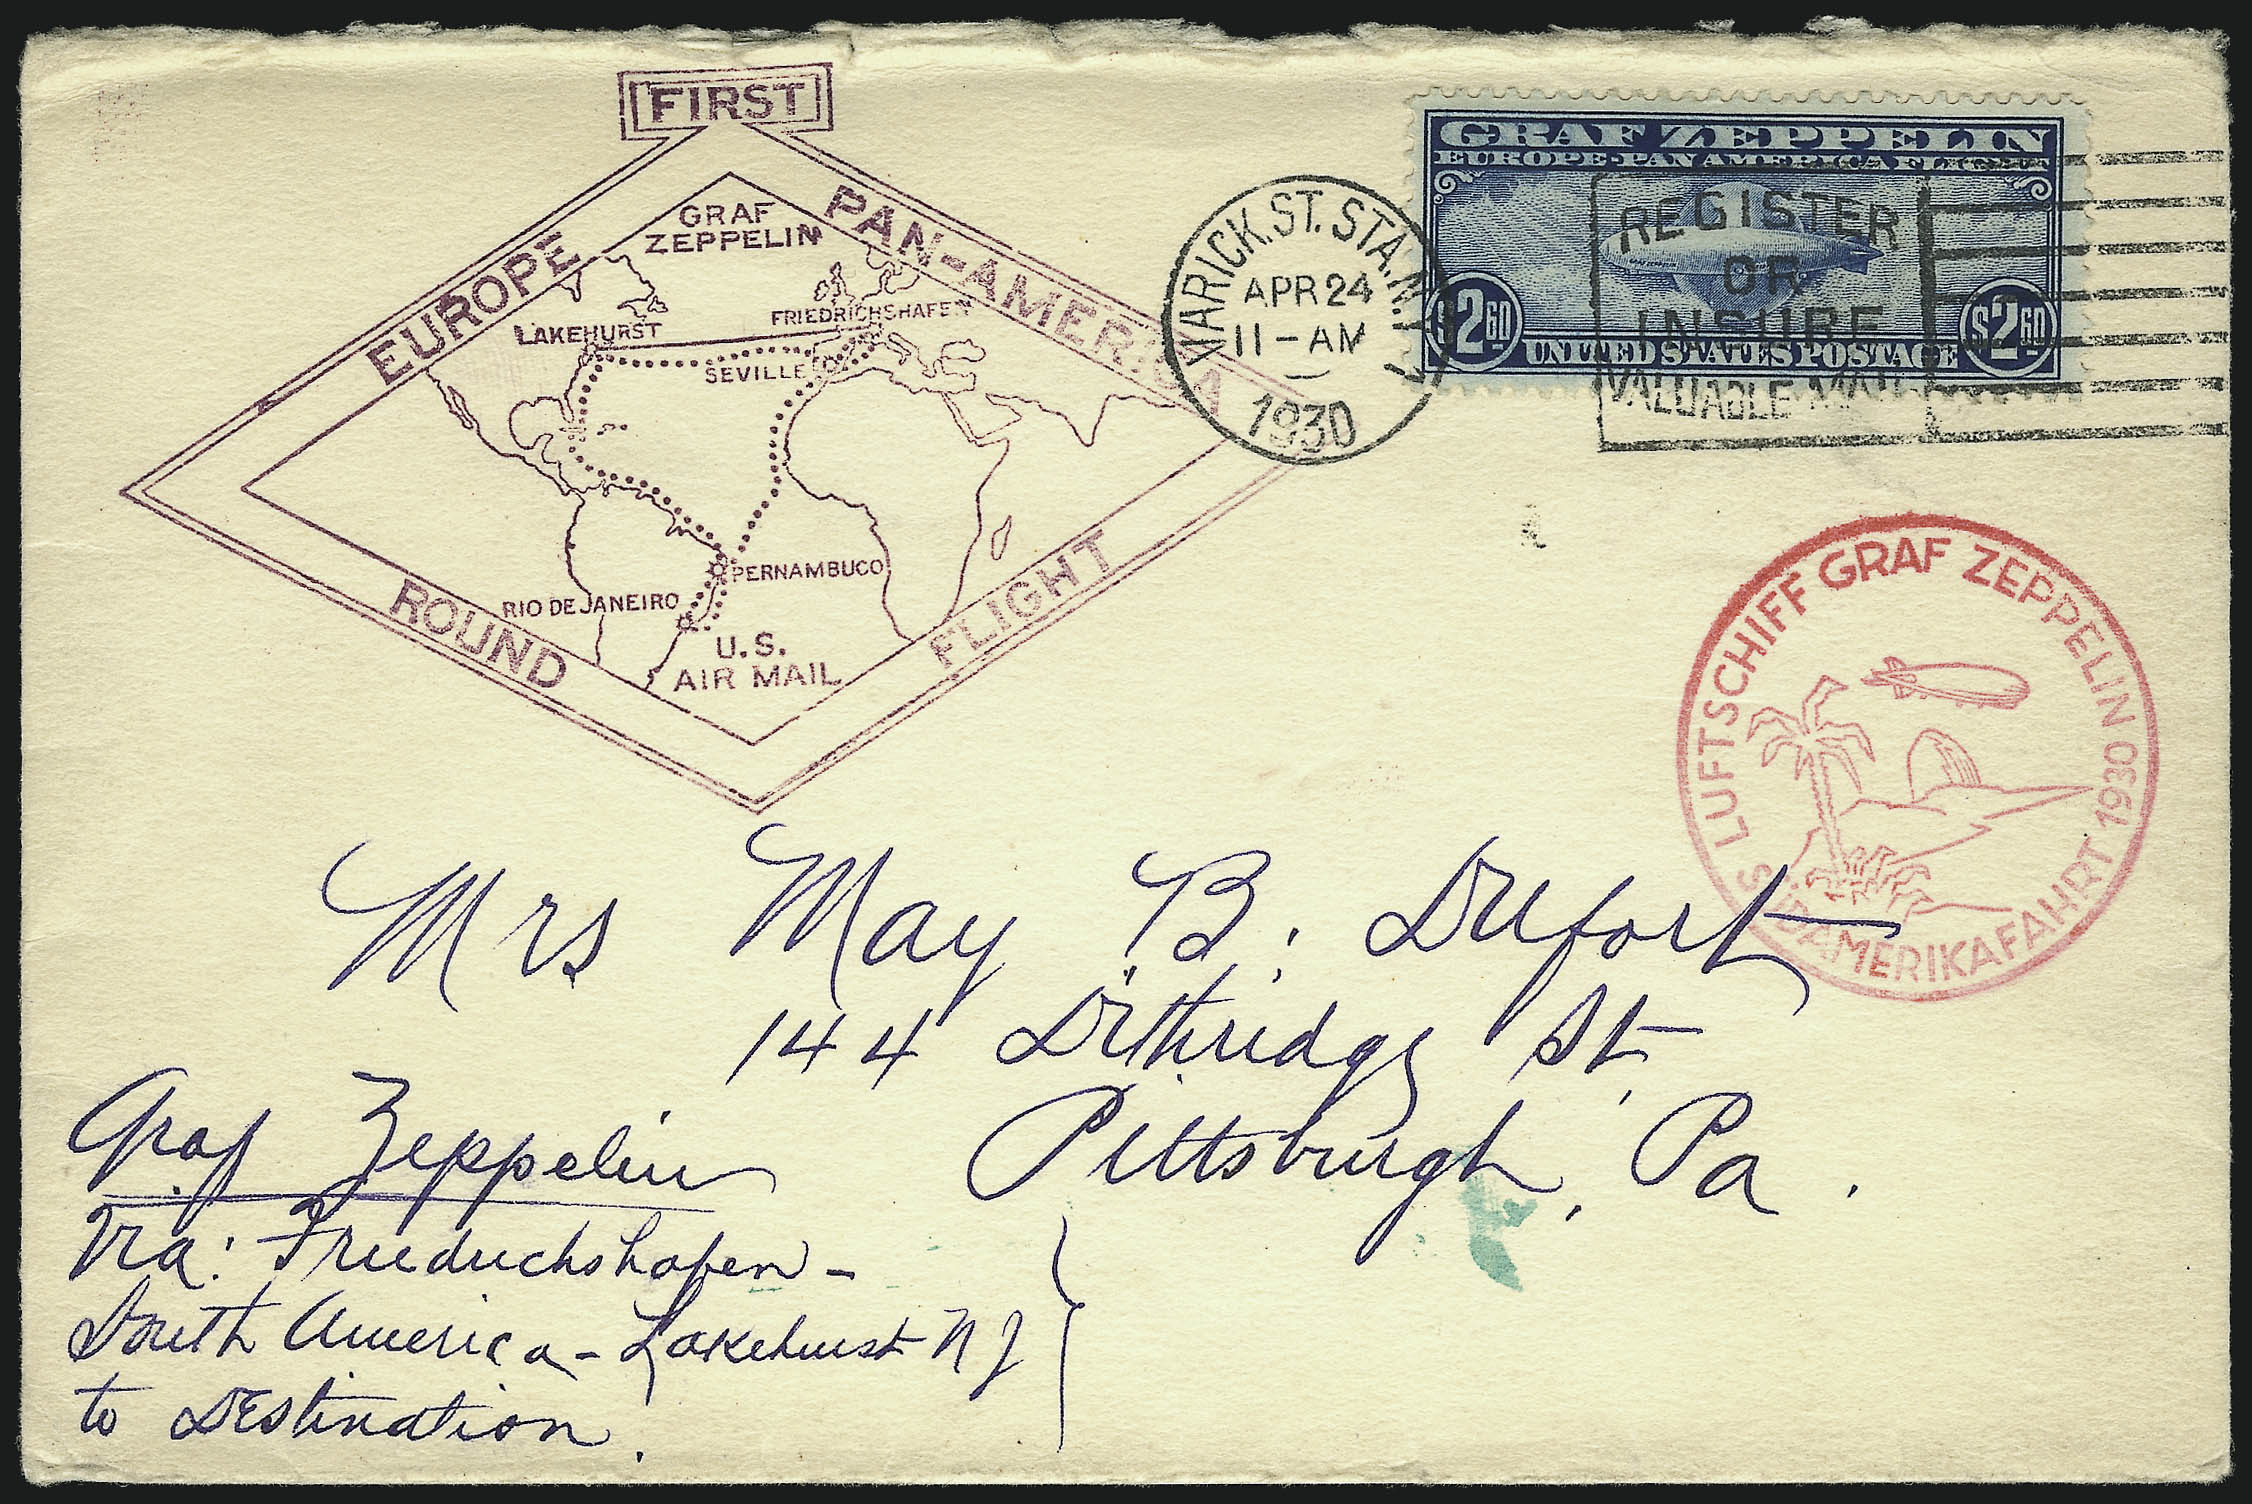 FIRST
EUROPE
PAN-AMERICA
ROUND
FLIGHT
GRAF
ZEPPELIN
LAKEHURST
FRIEDRICHSHAFEN
SEVILLE
PERNAMBUCO
RIO DE JANEIRO
U.S.
AIR MAIL
VARICK. ST. STA. N.Y.
APR 24
11-AM
1930
GRAF ZEPPELIN
EUROPE-PAN AMERICA FLIGHT
$2 60
$2 60
UNITED STATES POSTAGE
REGISTER
OR
INSURE
VALUABLE MAIL
LUFTSCHIFF GRAF ZEPPELIN 1930
SÜDAMERIKAFAHRT
Mrs May B. Dufort
144 Dithridge St.
Pittsburgh, Pa.
Graf Zeppelin
Via: Friedrichshafen-
South America-Lakehurst N J
to Destination.